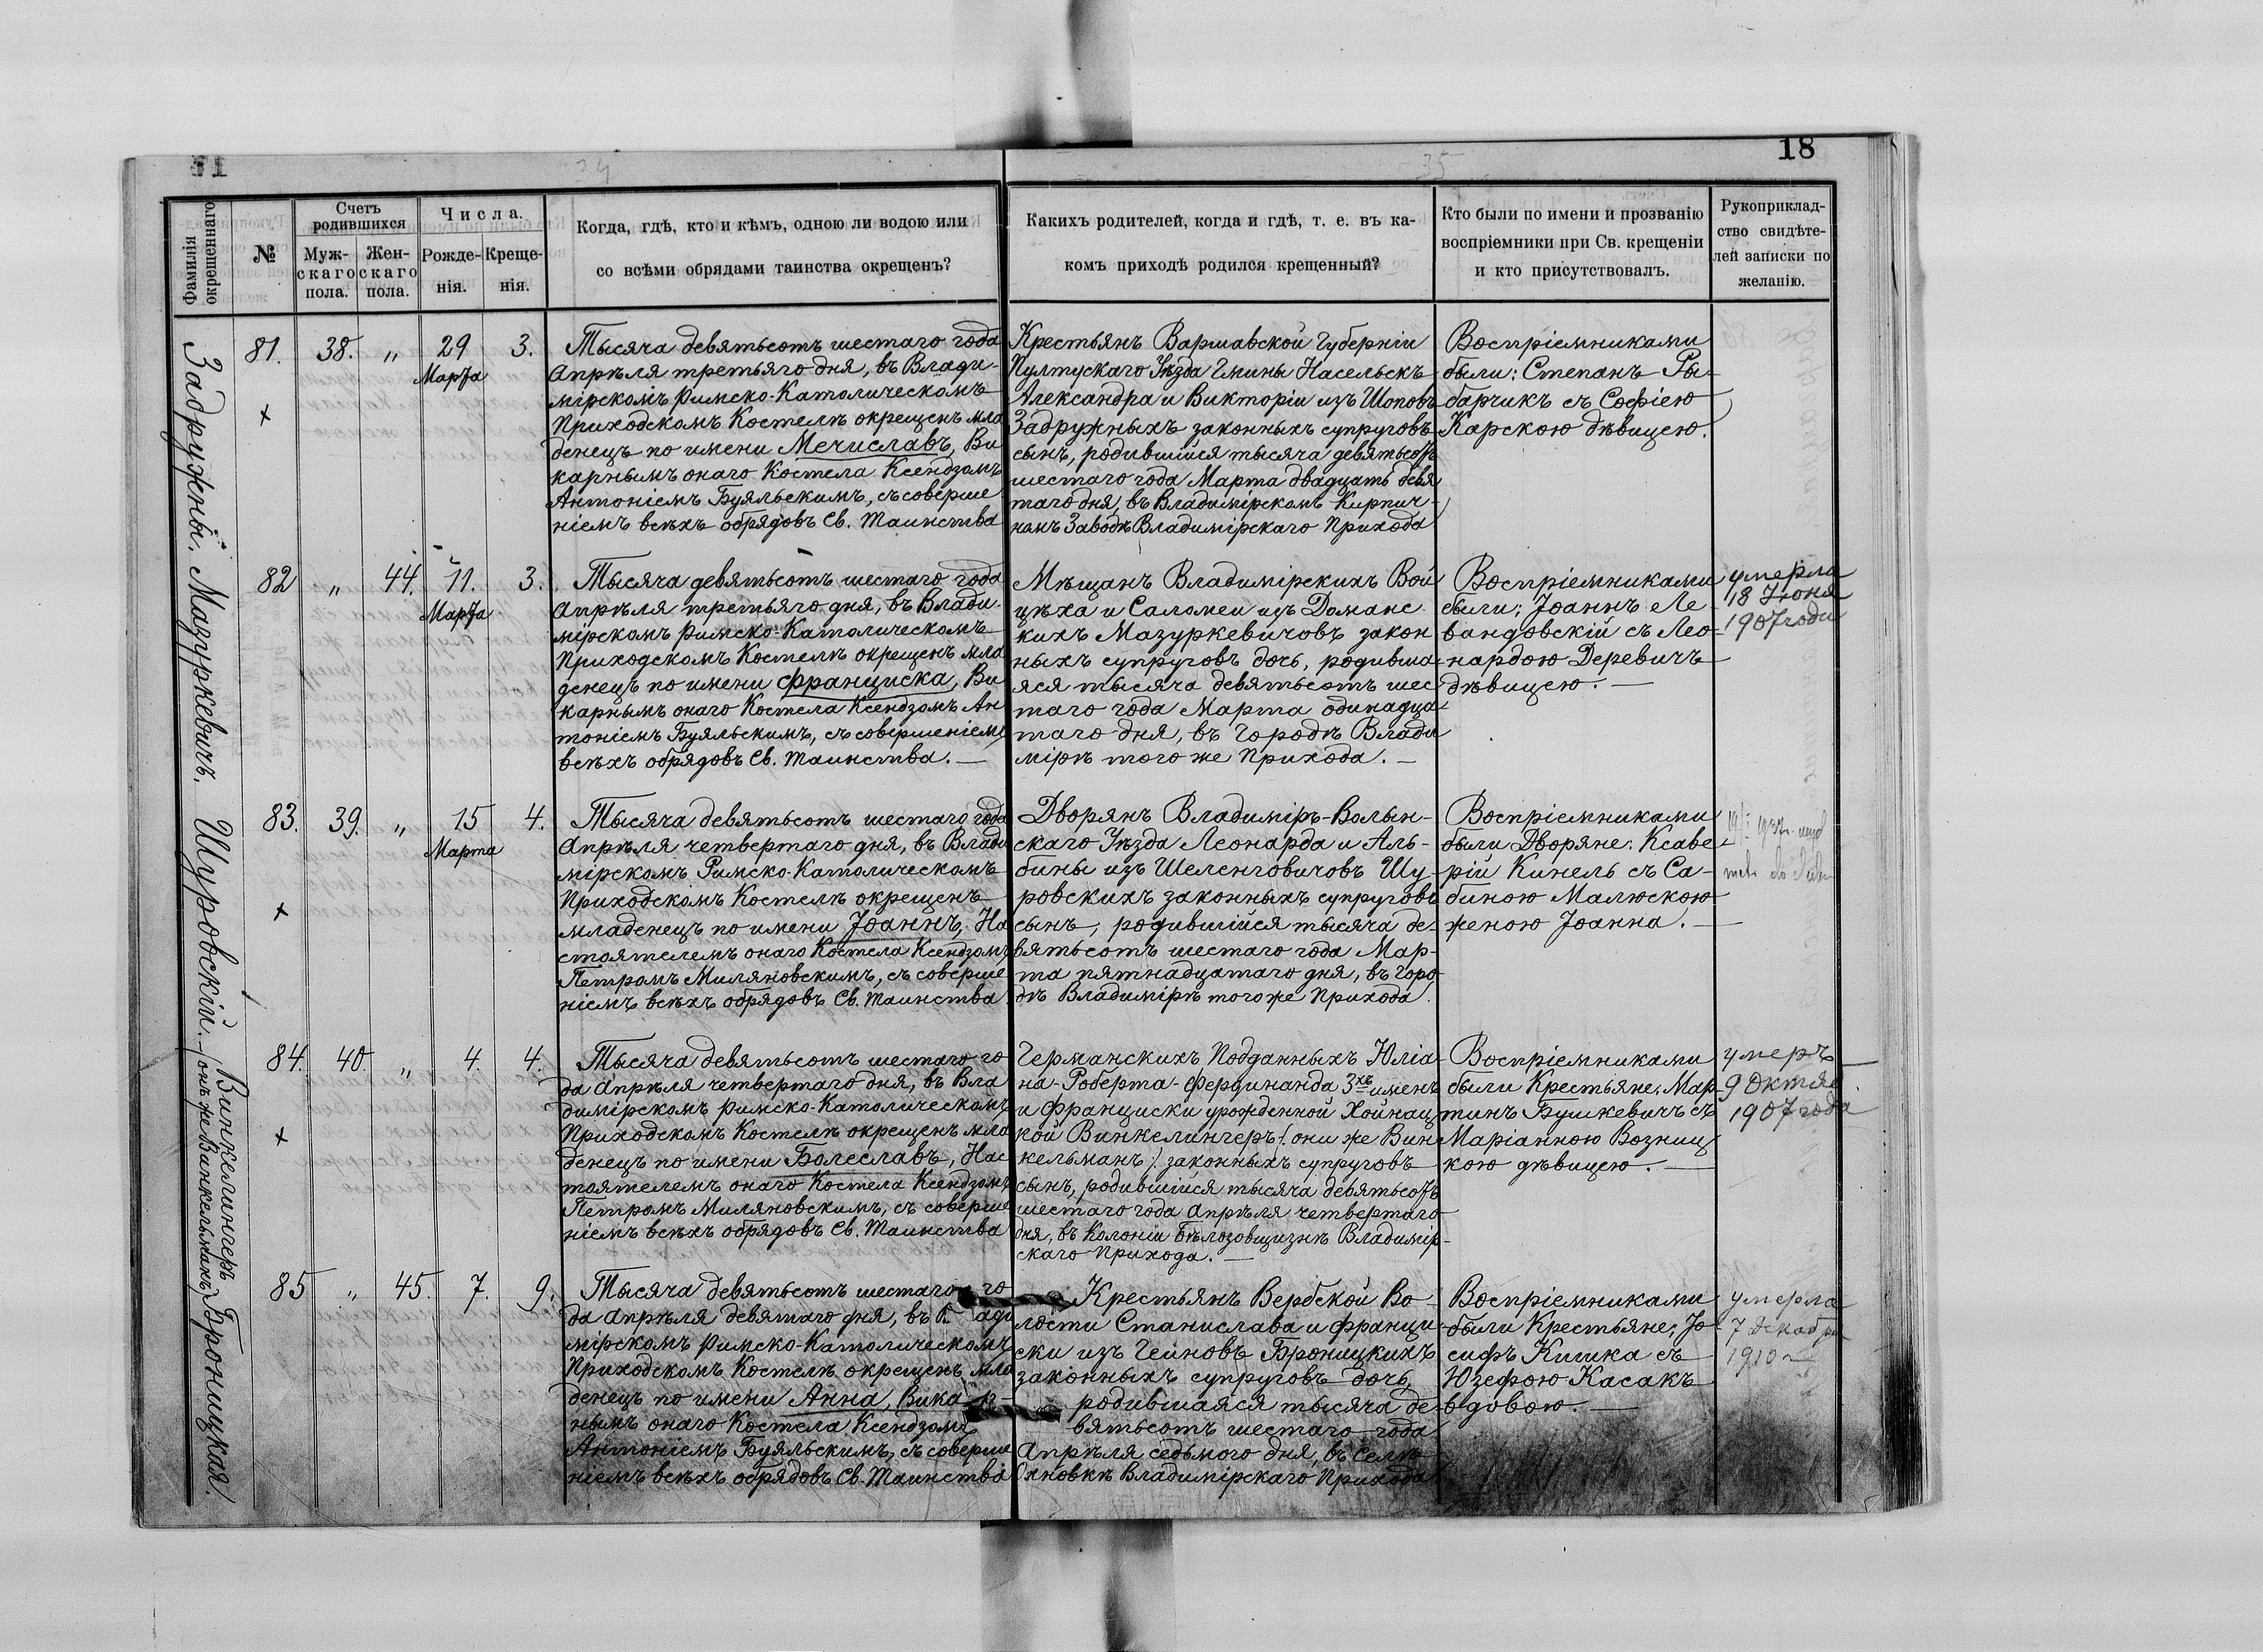 18
34
35
Фамилія окрещеннаго
№
Счетъ родившихся
Муж-
скаго
пола.
Жен-
скаго
пола.
Числа.
Рожде-
нія.
Креще-
нія.
Когда, гдѣ, кто и кѣмъ, одною ли водою или
со всѣми обрядами таинства окрещенъ?
Какихъ родителей, когда и гдѣ, т. е. въ ка-
комъ приходѣ родился крещенный?
Кто были по имени и прозванію
воспріемники при Св. крещеніи
и кто присутствовалъ.
Рукоприклад-
ство свидѣте-
лей записки по
желанію.
Задружный.
81. 38. „ 29 3.
Марта
+
Тысяча девятьсотъ шестаго года
Апрѣля третьяго дня, въ Влади-
мірскомъ Римско-Католическомъ
Приходскомъ Костелѣ окрещенъ мла
денецъ по имени Мечиславъ, Ви
карнымъ онаго Костела Ксендзомъ
Антоніемъ Буяльскимъ, съ соверше
ніемъ всѣхъ обрядовъ Св. Таинства
Крестьянъ Варшавской Губерніи
Пултускаго Уѣзда Гмины Насельскъ
Александра и Викторіи изъ Шоповъ
Задружныхъ законныхъ супруговъ
сынъ, родившійся тысяча девятьсотъ
шестаго года Марта двадцать девя
таго дня, въ Владимірскомъ Кирпич-
номъ Заводѣ Владимірскаго Прихода
Воспріемниками
были: Степанъ Ры-
барчикъ съ Софіею
Карскою дѣвицею.
Мазуркевичъ.
82 „ 44. 11. 3.
Марта
Тысяча девятьсотъ шестаго года
Апрѣля третьяго дня, въ Влади-
мірскомъ Римско-Католическомъ
Приходскомъ Костелѣ окрещенъ мла
денецъ по имени Франциска, Ви
карнымъ онаго Костела Ксендзомъ Ан
тоніемъ Буяльскимъ, съ совершеніемъ
всѣхъ обрядовъ Св. Таинства. —
Мѣщанъ Владимірскихъ Вой
цѣха и Саломеи изъ Доманс-
кихъ Мазуркевичовъ закон
ныхъ супруговъ дочь, родивша-
яся тысяча девятьсотъ шес
таго года Марта одинадца
таго дня, въ Городѣ Влади
мірѣ того же Прихода. —
Воспріемниками
были: Іоаннъ Ле
вандовскій съ Лео-
нардою Деревичъ
дѣвицею. —
умерла
18 Іюня
1907 года
Шуровскій. —
83. 39. „ 15 4.
Марта
+
Тысяча девятьсотъ шестаго года
Апрѣля четвертаго дня, въ Влади
мірскомъ Римско-Католическомъ
Приходскомъ Костелѣ окрещенъ
младенецъ по имени Іоаннъ, На
стоятелемъ онаго Костела Ксендзомъ
Петромъ Миляновскимъ, съ соверше
ніемъ всѣхъ обрядовъ Св. Таинства
Дворянъ Владиміръ-Волын-
скаго Уѣзда Леонарда и Аль-
бины изъ Шеленговичовъ Шу-
ровскихъ законныхъ супруговъ
сынъ, родившійся тысяча де-
вятьсотъ шестаго года Мар-
та пятнадцатаго дня, въ Горо-
дѣ Владимірѣ того же Прихода.
Воспріемниками
были Дворяне: Ксаве
рій Кинель съ Са-
биною Малюскою
женою Іоанна. —
Винкелингеръ
/онъ же Винкельманъ/
84. 40. „ 4. 4.
+
Тысяча девятьсотъ шестаго го
да Апрѣля четвертаго дня, въ Вла
димірскомъ Римско-Католическомъ
Приходскомъ Костелѣ окрещенъ мла
денецъ по имени Болеславъ, Нас
тоятелемъ онаго Костела Ксендзомъ
Петромъ Миляновскимъ, съ соверше
ніемъ всѣхъ обрядовъ Св. Таинства
Германскихъ Подданныхъ Юліа-
на-Роберта-Фердинанда 3хъ именъ
и Франциски урожденной Хойнац
кой Винкелингеръ /они же Вин
кельманъ/ законныхъ супруговъ
сынъ, родившійся тысяча девятьсотъ
шестаго года Апрѣля четвертаго
дня, въ Колоніи Бѣлозовщизнѣ Владимір-
скаго Прихода. —
Воспріемниками
были Крестьяне: Мар-
тинъ Бушкевичъ съ
Маріанною Возниц
кою дѣвицею. —
умеръ
9 Октяб.
1907 года
Броницкая.
85 „ 45. 7. 9.
Тысяча девятьсотъ шестаго го
да Апрѣля девятаго дня, въ Влади
мірскомъ Римско-Католическомъ
Приходскомъ Костелѣ окрещенъ мла
денецъ по имени Анна, Викар-
нымъ онаго Костела Ксендзомъ
Антоніемъ Буяльскимъ, съ соверше
ніемъ всѣхъ обрядовъ Св. Таинства
Крестьянъ Вербской Во
лости Станислава и Францис
ски изъ Гейновъ Броницкихъ
законныхъ супруговъ дочь,
родившаяся тысяча де-
вятьсотъ шестаго года
Апрѣля седьмого дня, въ Селѣ
Охновкѣ Владимірскаго Прихода
Воспріемниками
были Крестьяне: Іо
сифъ Кишка съ
Юзефою Касакъ
вдовою —
умерла
7 Декабря
1910